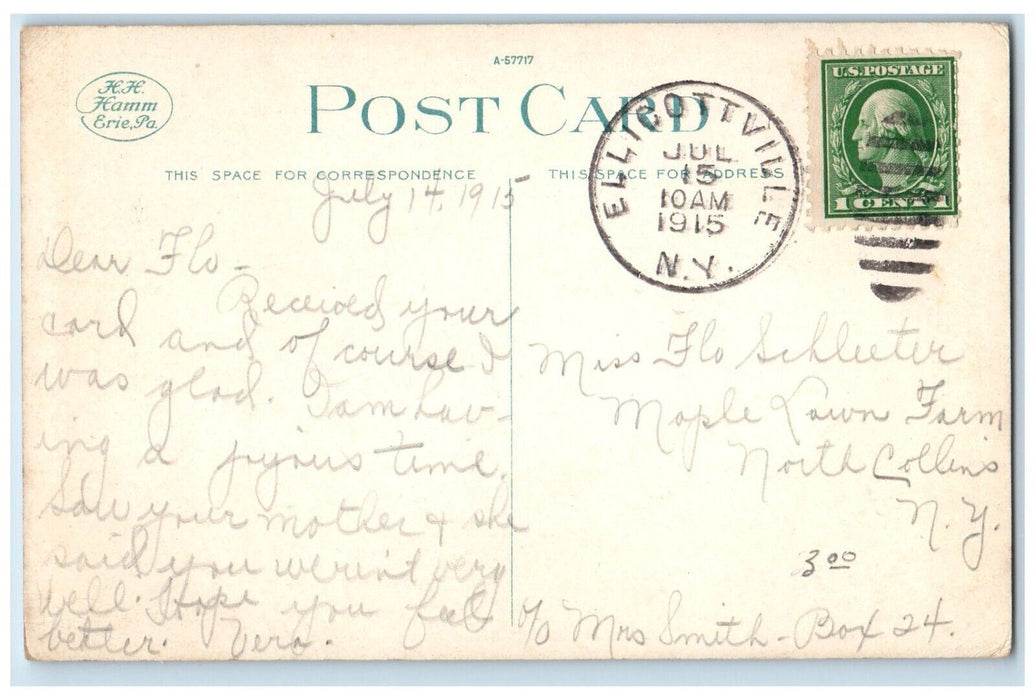 A-57717
H.H.
Hamm
Erie, Pa.
POST CARD
THIS SPACE FOR CORRESPONDENCE
THIS SPACE FOR ADDRESS
U.S. POSTAGE
1 CENT 1
ELLICOTTVILLE
JUL
15
10AM
1915
N.Y.
July 14, 1915
Dear Flo -
Received your
card and of course I
was glad. I am hav-
ing a joyous time.
Saw your mother & she
said you werin't very
well. Hope you feel
better. Vera.
Miss Flo Schlieter
Maple Lawn Farm
North Collins
N.Y.
3 00
c/o Mrs Smith - Box 24.